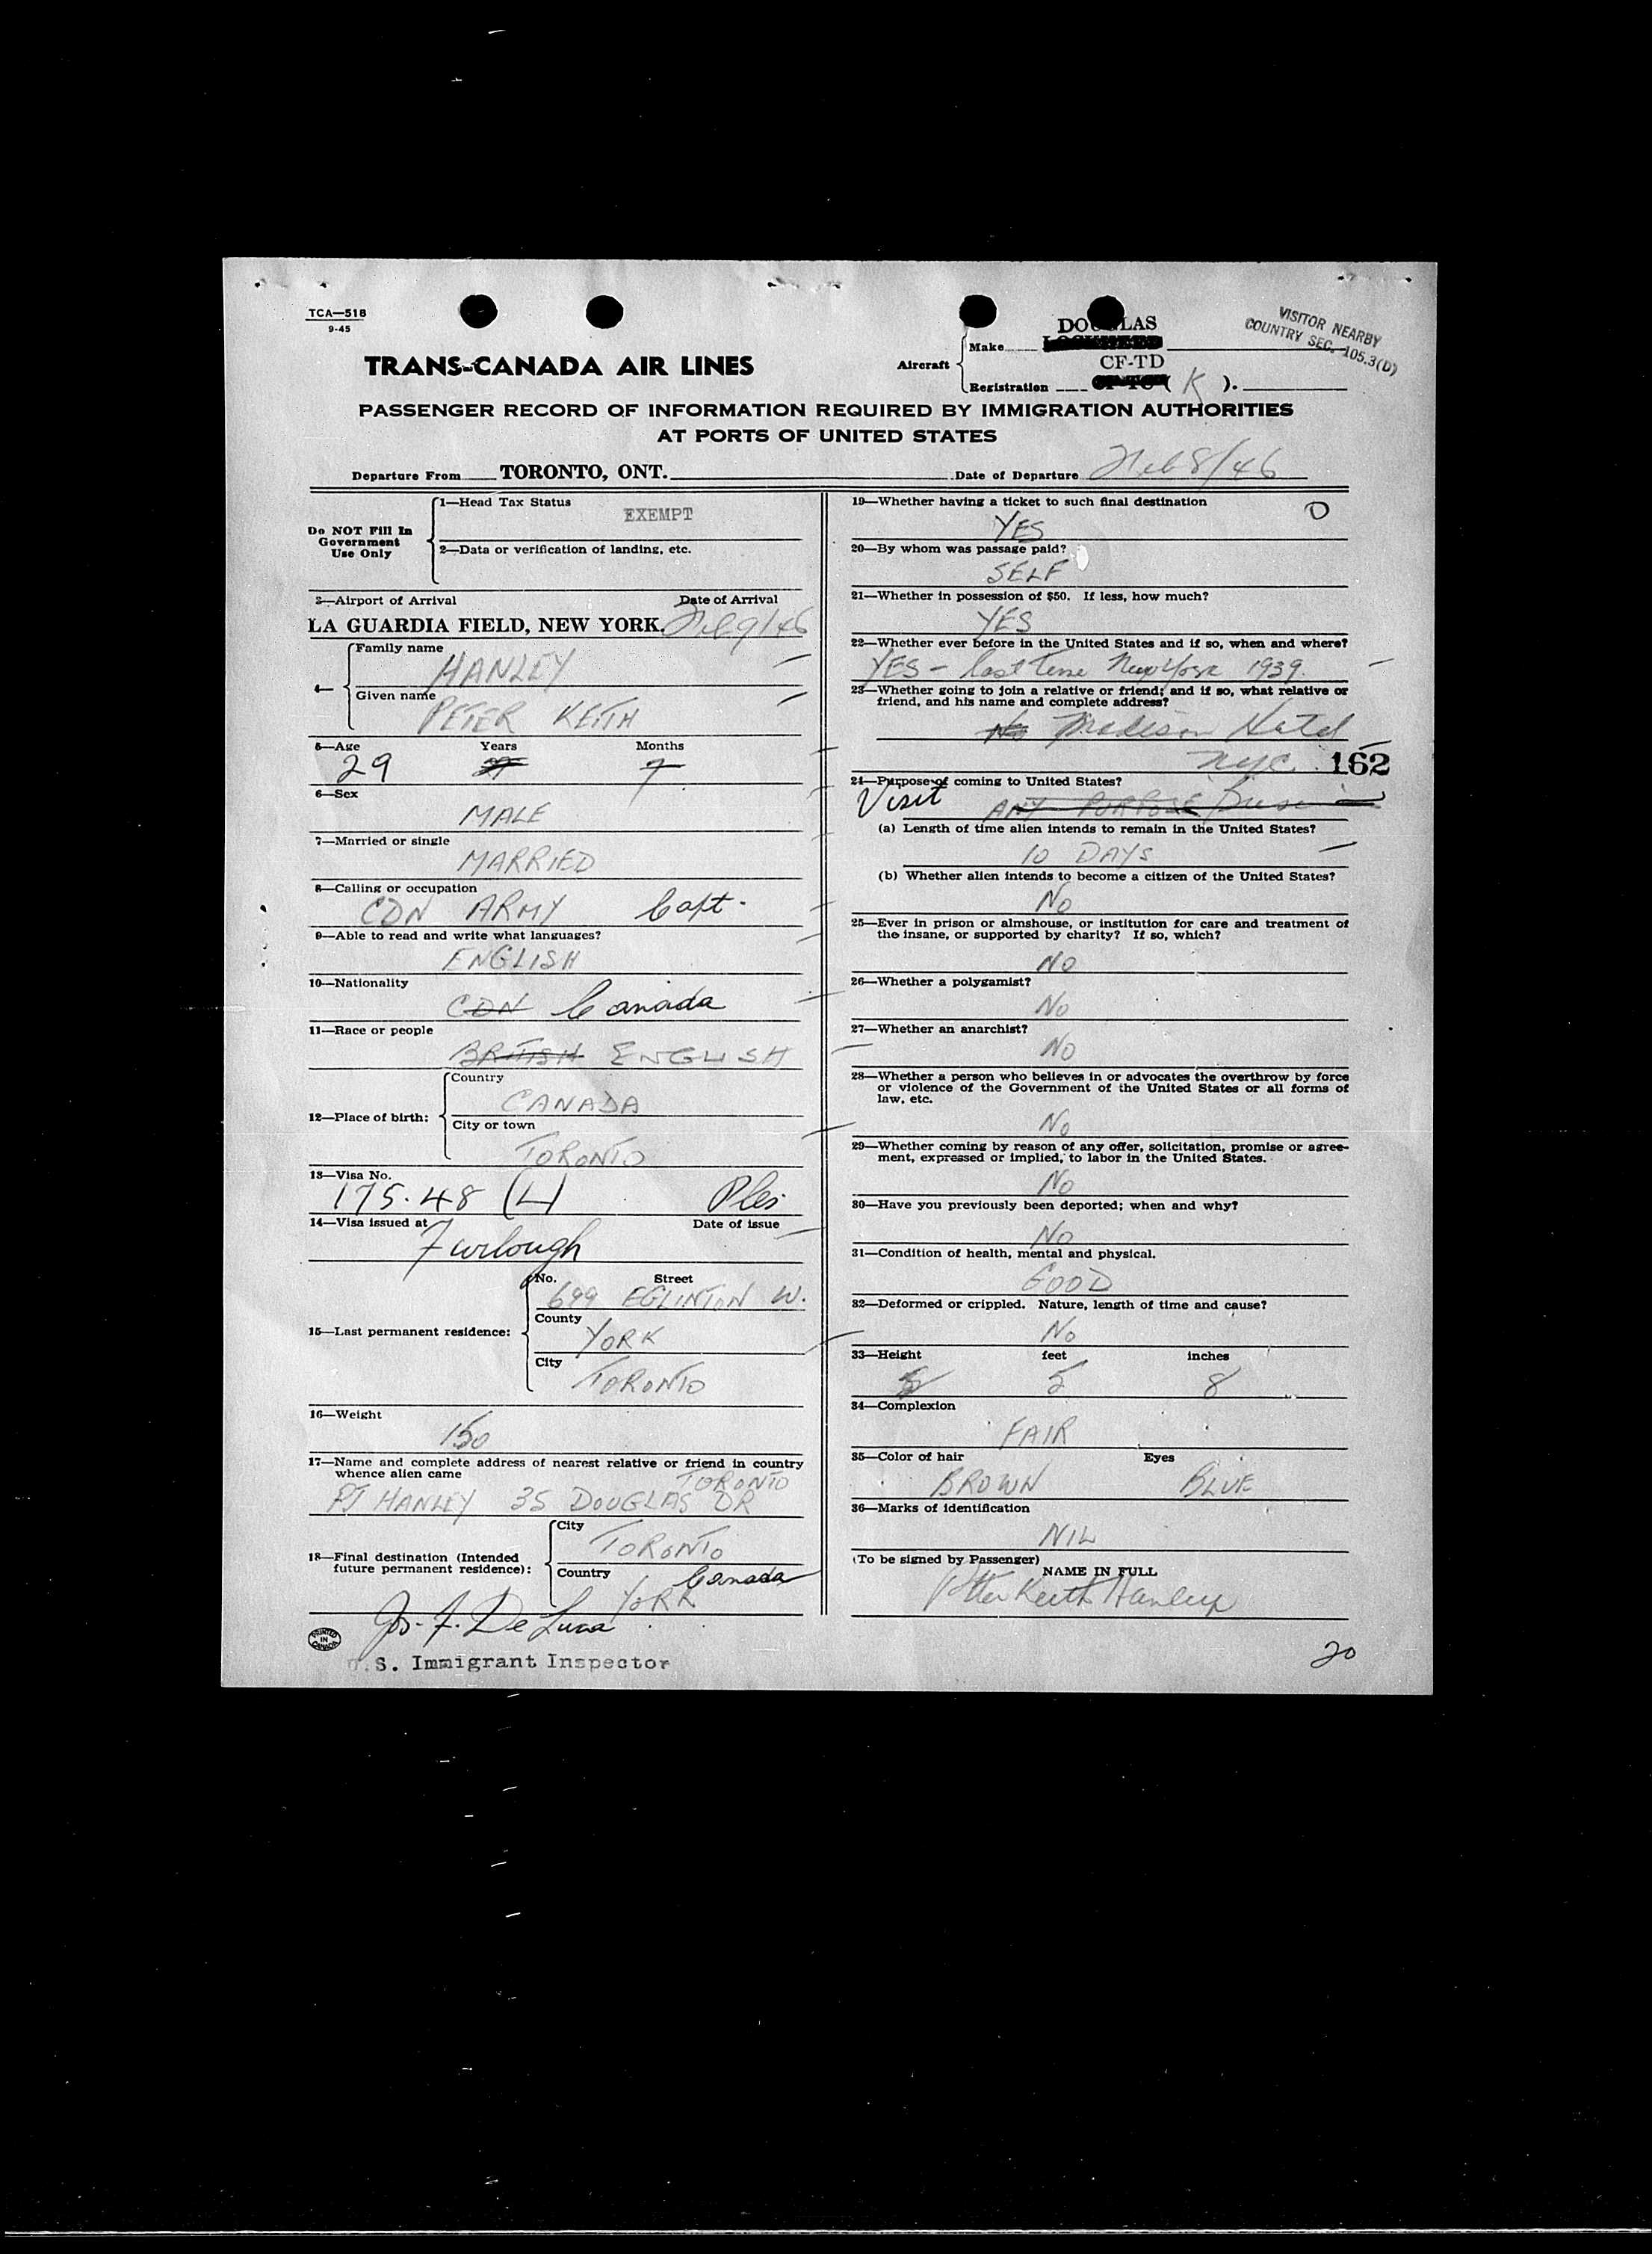 TCA—518
9-45
VISITOR NEARBY
COUNTRY SEC. 105.3(D)
TRANS-CANADA AIR LINES
Aircraft
DOUGLAS
Make
CF-TD
Registration ( K ).
PASSENGER RECORD OF INFORMATION REQUIRED BY IMMIGRATION AUTHORITIES
AT PORTS OF UNITED STATES
Departure From TORONTO, ONT. Date of Departure Feb 8/46
Do NOT Fill In
Government
Use Only
1—Head Tax Status
EXEMPT
2—Data or verification of landing, etc.
3—Airport of Arrival Date of Arrival
LA GUARDIA FIELD, NEW YORK. Feb 9/46
4—
Family name
HANLEY
Given name
PETER KEITH
5—Age Years Months
29 7
6—Sex
MALE
7—Married or single
MARRIED
8—Calling or occupation
CDN ARMY Capt.
9—Able to read and write what languages?
ENGLISH
10—Nationality
CDN Canada
11—Race or people
BRITISH ENGLISH
12—Place of birth:
Country
CANADA
City or town
TORONTO
13—Visa No.
175.48 (L)
14—Visa issued at Date of issue
Furlough
15—Last permanent residence:
No. Street
699 EGLINTON W.
County
YORK
City
TORONTO
16—Weight
150
17—Name and complete address of nearest relative or friend in country
whence alien came
TORONTO
PJ HANLEY 35 DOUGLAS DR
18—Final destination (Intended
future permanent residence):
City
TORONTO
Country Canada
YORK
Jos. F. De Luca
U.S. Immigrant Inspector
PRINTED IN CANADA
19—Whether having a ticket to such final destination
O
YES
20—By whom was passage paid?
SELF
21—Whether in possession of $50. If less, how much?
YES
22—Whether ever before in the United States and if so, when and where?
YES - last time New York 1939.
23—Whether going to join a relative or friend; and if so, what relative or
friend, and his name and complete address?
No Madison Hotel
NYC 162
24—Purpose of coming to United States?
Visit ANY PURPOSE
(a) Length of time alien intends to remain in the United States?
10 DAYS
(b) Whether alien intends to become a citizen of the United States?
No
25—Ever in prison or almshouse, or institution for care and treatment of
the insane, or supported by charity? If so, which?
NO
26—Whether a polygamist?
No
27—Whether an anarchist?
NO
28—Whether a person who believes in or advocates the overthrow by force
or violence of the Government of the United States or all forms of
law, etc.
No
29—Whether coming by reason of any offer, solicitation, promise or agree-
ment, expressed or implied, to labor in the United States.
No
30—Have you previously been deported; when and why?
No
31—Condition of health, mental and physical.
GOOD
32—Deformed or crippled. Nature, length of time and cause?
No
33—Height feet inches
5 8
34—Complexion
FAIR
35—Color of hair Eyes
BROWN BLUE
36—Marks of identification
NIL
(To be signed by Passenger)
NAME IN FULL
Peter Keith Hanley
20